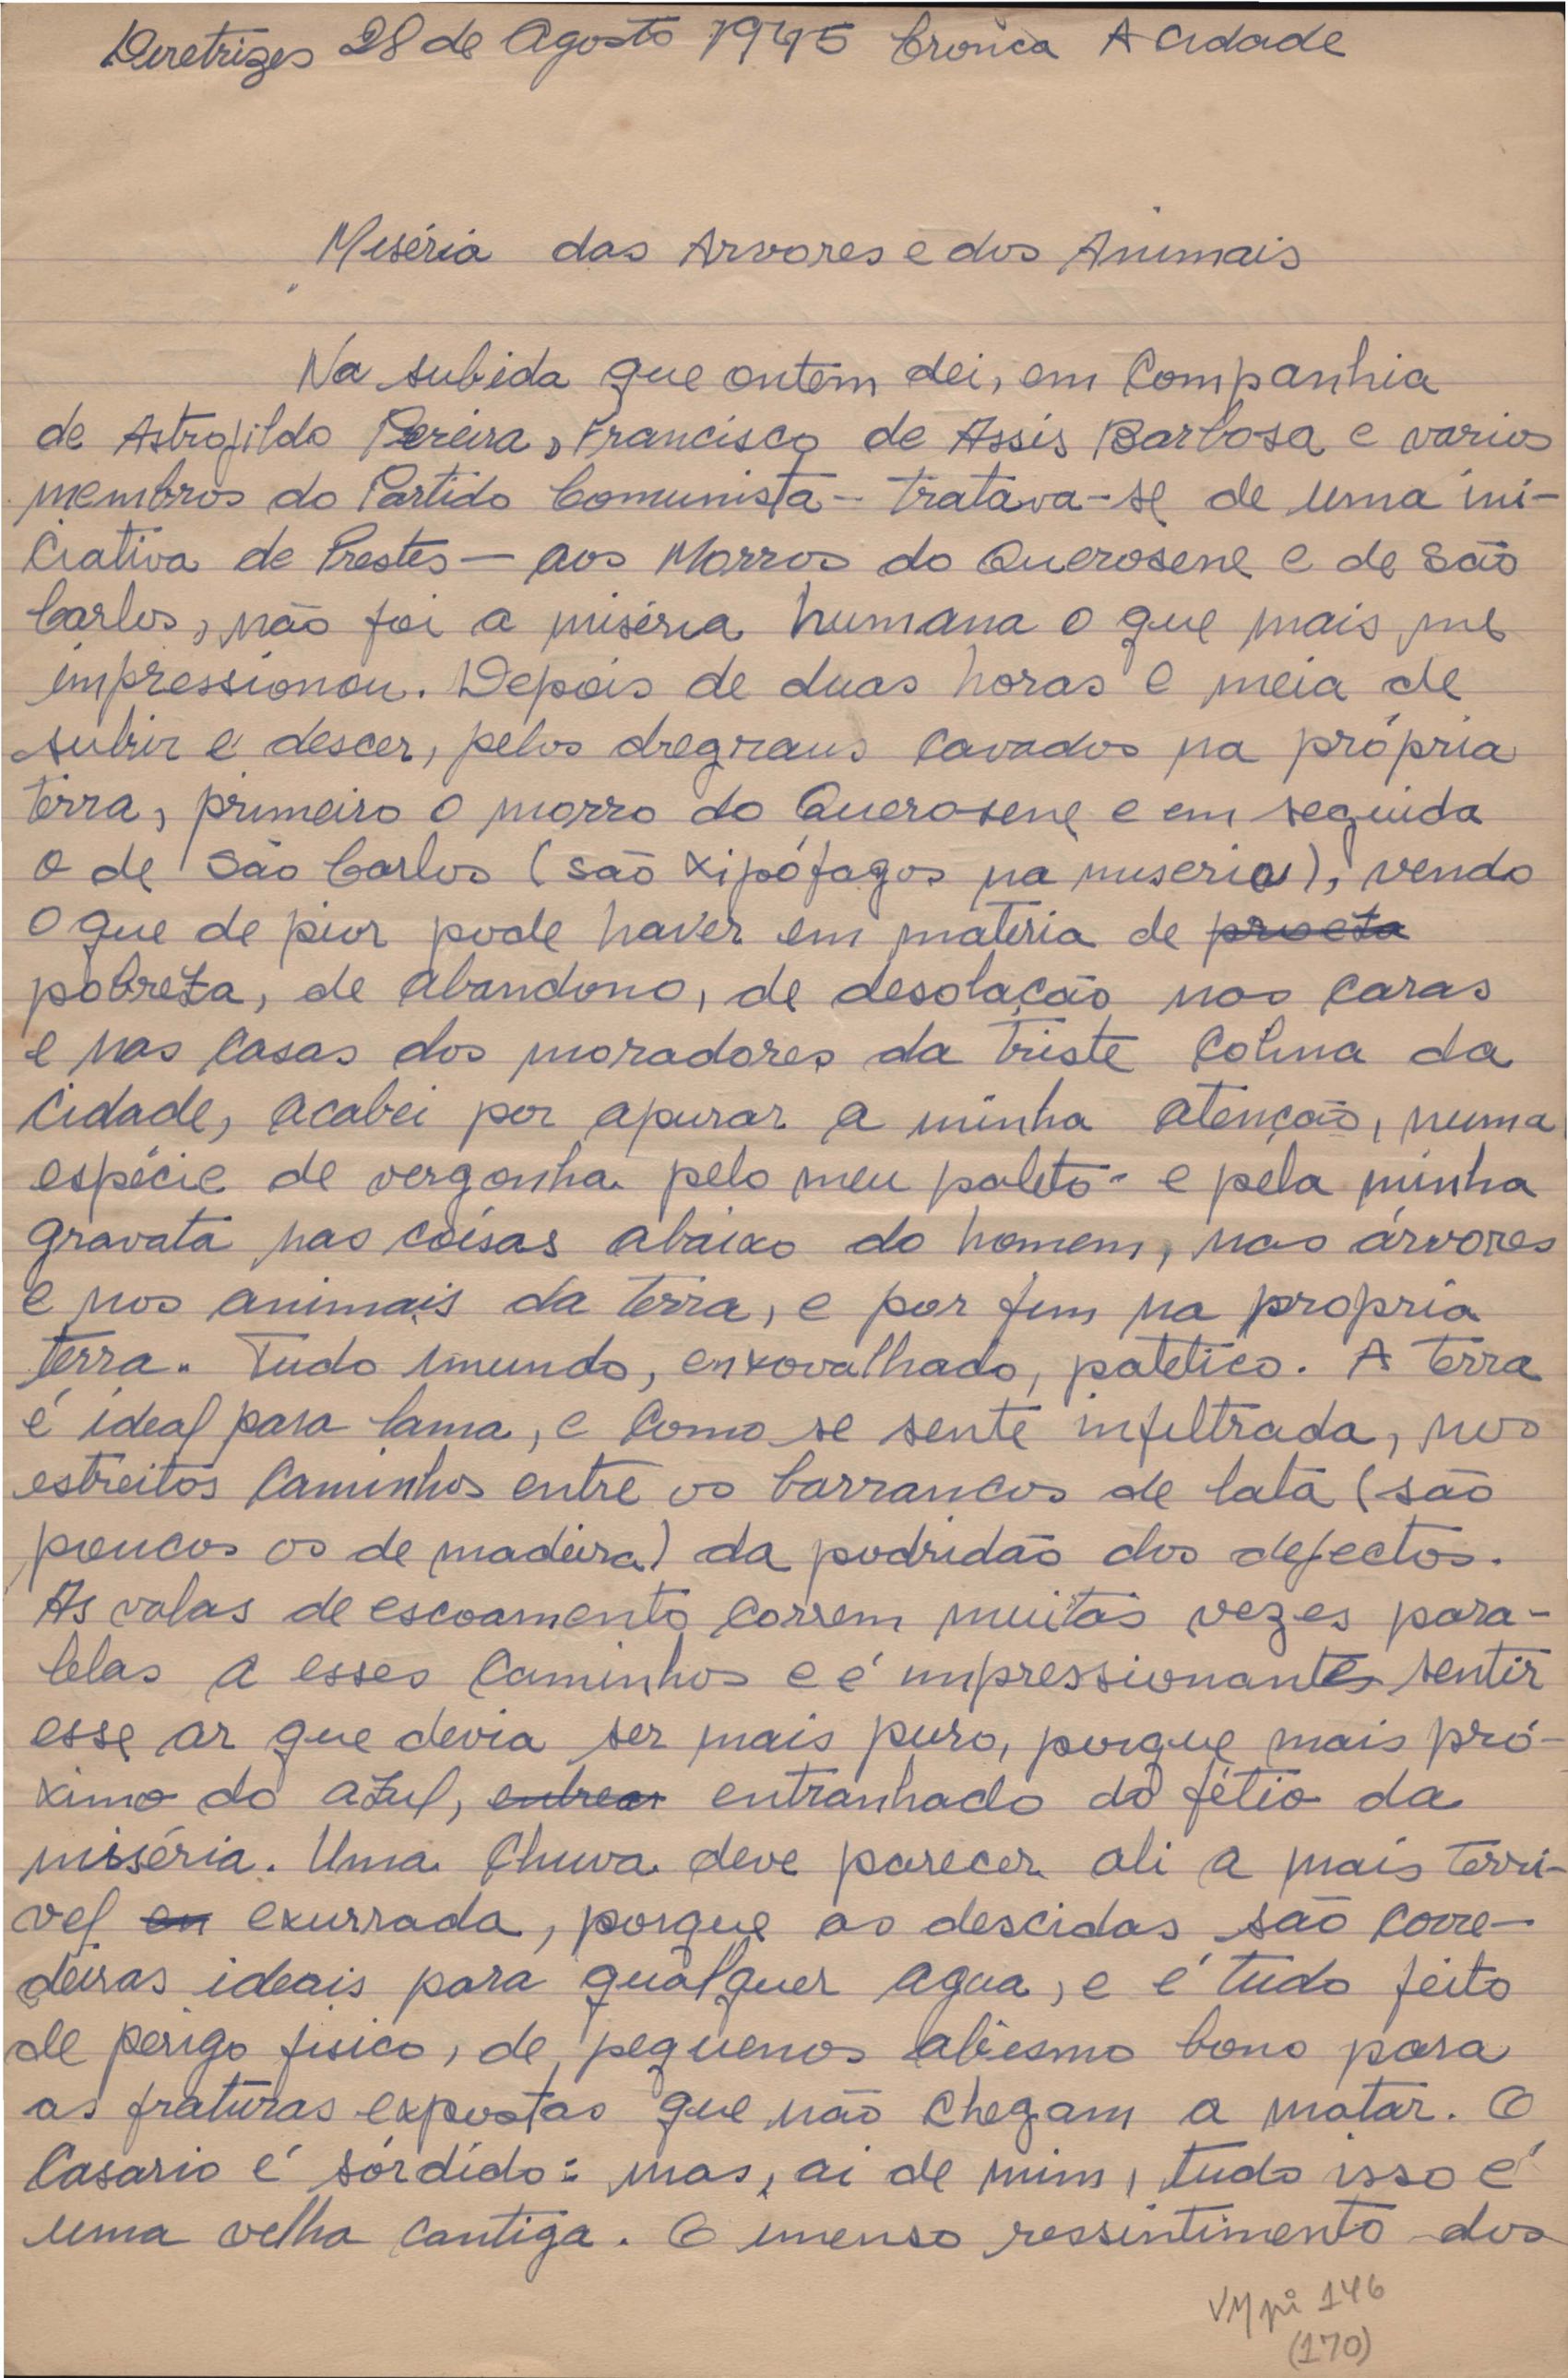 Diretrizes 28 de Agosto 1945 Cronica A Cidade
Miséria das Arvores e dos Animais
Na subida que ontem dei, em Companhia
de Astrojildo Pereira, Francisco de Assis Barbosa e varios
membros do Partido Comunista - tratava-se de uma ini-
ciativa de Prestes - aos Morros do Querosene e de São
Carlos, não foi a miséria humana o que mais me
impressionou. Depois de duas horas e meia de
subir e descer, pelos dregraus cavados na própria
terra, primeiro o morro do Querosene e em seguida
o de São Carlos (são xipófagos na miseria), vendo
o que de pior pode haver em materia de
pobreza, de abandono, de desolação nas caras
e nas casas dos moradores da triste Colina da
Cidade, acabei por apurar a minha atenção, numa
espécie de vergonha pelo meu paletó e pela minha
gravata nas coisas abaixo do homem, nas árvores
e nos animais da terra, e por fim na propria
terra. Tudo imundo, enxovalhado, patetico. A terra
é ideal para lama, e como se sente infiltrada, nos
estreitos caminhos entre os barrancos de lata (são
poucos os de madeira) da podridão dos defectos.
As valas de escoamento correm muitas vezes para-
lelas a esses caminhos e é impressionante sentir
esse ar que devia ser mais puro, porque mais pró-
ximo do azul, entranhado do fétio da
misséria. Uma Chuva deve parecer ali a mais terri-
vel exurrada, porque as descidas são corre-
deiras ideais para qualquer agua, e é tudo feito
de perigo fisico, de pequenos abismo bons para
as fraturas expostas que não chegam a matar. O
Casario é sórdido: mas, ai de mim, tudo isso é
uma velha cantiga. O imenso ressintimento dos
VM pi 146
(170)